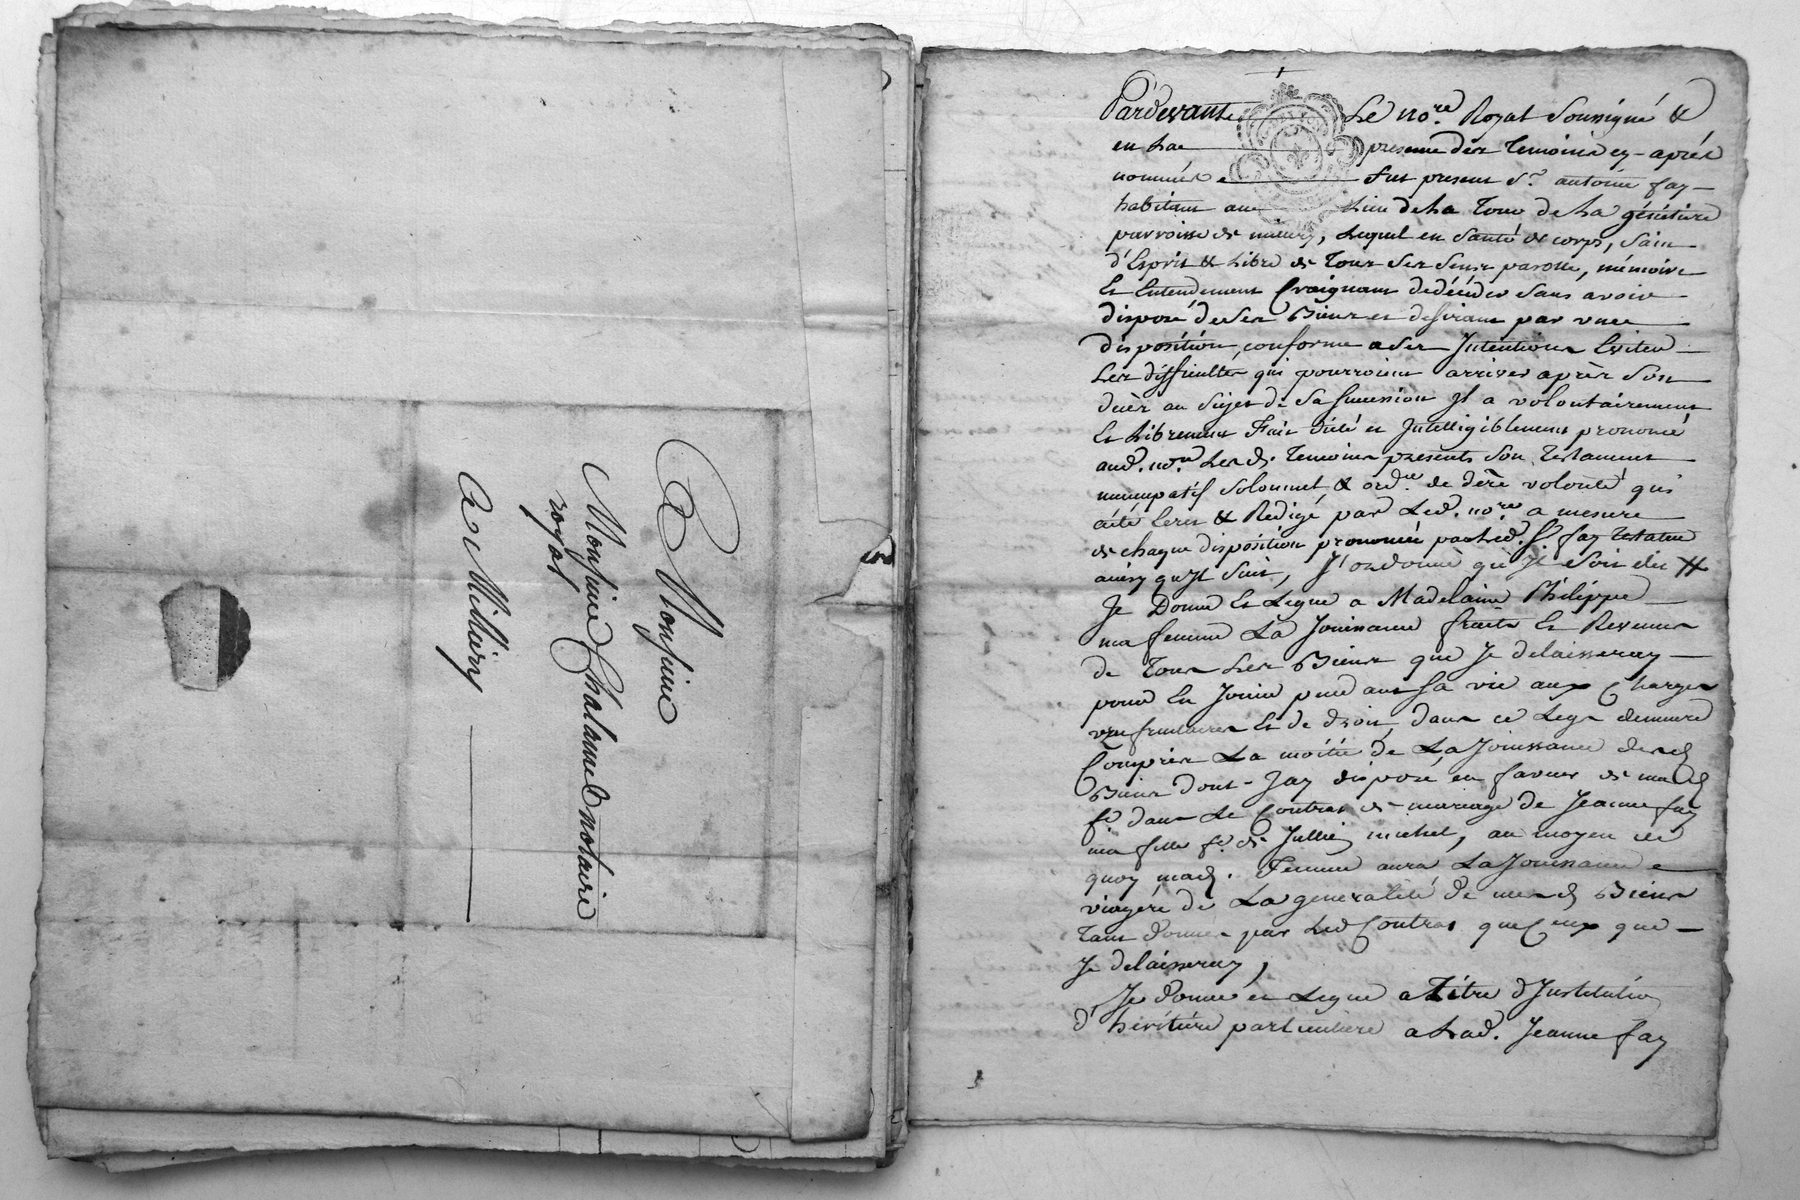 A Monsieur
Monsieur Chalanne notaire
royal
A Millery
Pardevant Le no.re Royal Soussigné &
en La presence des temoins cy-après
nommés fut present S.r antoine fay
habitant au Lieu de La Tour de La
parroisse de, Lequel en santé de corps, sain
d'Esprit & Libre de tous ses sens parolle, mémoire
Et Entendement Craignant de déceder sans avoir
disposé de ses Biens et desirant par une
disposition, conforme a ses Intentions Eviter
Les difficultes qui pourroient arriver après son
decès au sujet de sa succession Il a volontairement
Et Librement fait dicté et Intelligiblement prononcé
aud. no.re Lesd. temoins présents son testament
nuncupatif solemnel & ord.re de dere volonté qui
a été Ecrit & Redigé par Led. no.re a mesure
de chaque disposition prononcée par Led. S.r fay testateur
ainsy qu'Il suit, J'ordonne qu'Il soit
Je Donne Et Legue a Madelaine Philippe
ma femme La Jouissance fruits Et Revenus
de tous Les Biens que Je delaisseray
pour En Jouir pendant sa vie aux Charges
usufruitaires Et de droit, dans ce Legs demeure
Compris La moitié de La Jouissance desd
Biens dont Jay disposé en faveur de mad
fe dans Le Contrat de mariage de Jeanne fay
ma fille fe de Jullien michel, au moyen de
quoy mad. femme aura La Jouissance
viagère de La generalité de mesd Biens
tant donnes par Led Contrat que Ceux que
Je delaisseray,
Je donne et Legue a titre d'Institution
d'héritière particuliere a Lad. Jeanne fay